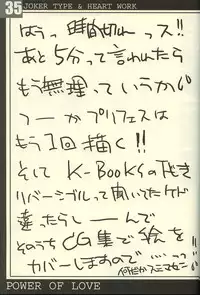 35 JOKER TYPE & HEART WORK
はうっ 時間切れっス!!
あと5分って言われたら
もう無理っていうかい
つーかプリフェスは
もう1回描く!!
そして K-BOOKSの下さ
リバーシブルって聞いてたケド
違ったらし――んで
そのうちCG集で絵を
カバーしますので……っっ
何だかスミマセン!!
POWER OF LOVE